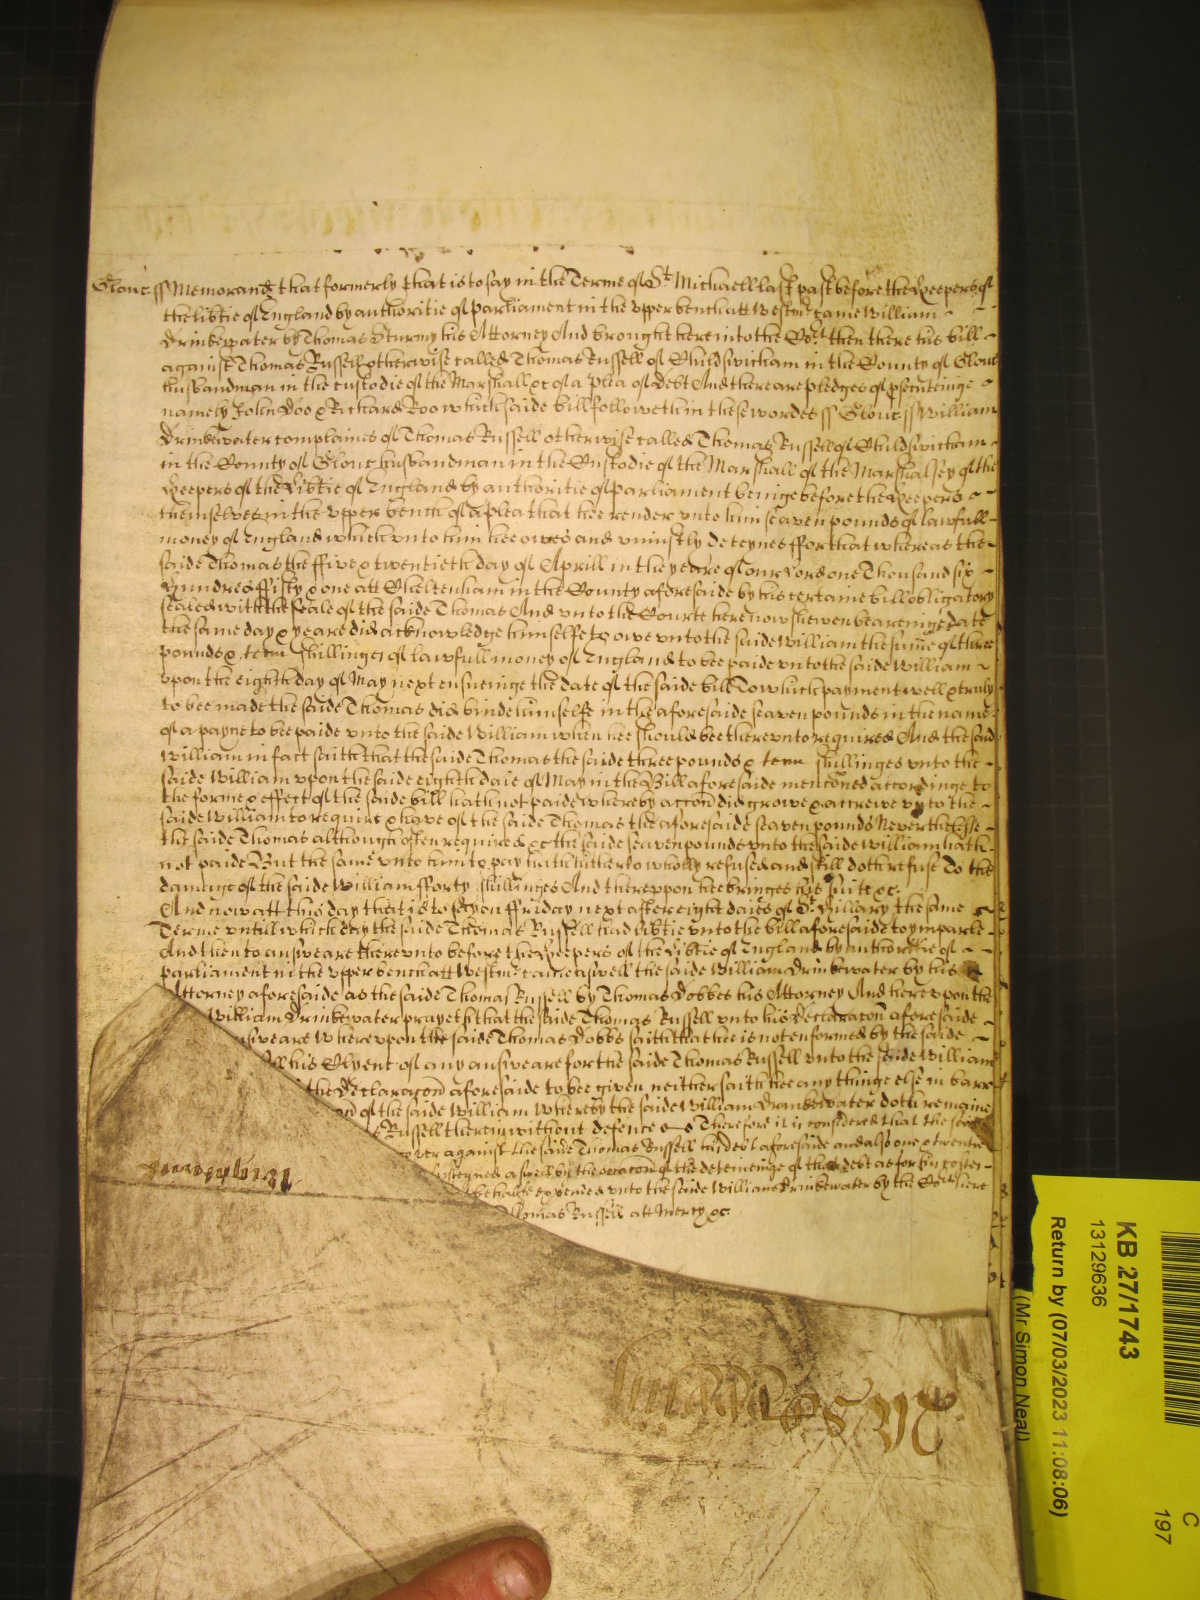 Glouc ss Memorand that formerly that is to say in the Terme of St Michaell last past before the Keepers of
the libtie of England by authoritie of Parliament in the upper bench att Westmr came William
Drinkewater by Thomas Sturmy his Attorney And brought here into the Cort then there his bill
against Thomas Russell otherwise called Thomas Russell of Chuldswicham in the County of Glouc
husbandman in the custodie of the Marshall &c of a plea of debt And there are pledges of psecuteinge
namely John Doo & Richard Roo which saide bill followeth in these wordes ss Glouc ss William
Drinkewater complaines of Thomas Russell otherwise called Thomas Russell of Chuldswicham
in the County of Glouc husbandman in the Custodie of the Marshall of the Marshalsey of the
Keepers of the Libtie of England by authoritie of Parliament beinge before the Keepers
themselves in the upper bench of a plea that hee render unto him seaven pounds of lawfull
money of England which unto him hee owes and uniustly deteynes ffor that whereas the
saide Thomas the ffive & twentieth day of Aprill in the yeare of our Lord one Thousand six
hundred ffifty & one att Cheltenham in the County aforesaide by his certaine bill obligatory
sealed with the seale of the saide Thomas And unto the Courte here now shewen beareinge date
the same day & yeare did acknowledge himselfe to owe unto the saide William the sume of three
pounds & tenn shillinges of lawfull money of England to bee paide unto the saide William
upon the eighth day of May next ensueinge the date of the saide bill To which payment well & truly
to bee made the saide Thomas did binde himselfe in the aforesaide seaven pounds in the name
of a payne to bee paide unto the saide William when hee should bee thereunto required And the said
William in fact saith that the saide Thomas the saide three pounds & tenn shillinges unto the
saide William upon the saide eighth daie of May in the Bill aforesaide mentoned accordinge to
the forme & effect of the saide bill hath not paide whereby accon did growe & accrewe unto the
saide William to require & have of the saide Thomas the aforesaide seaven pounds Neverthelesse
the saide Thomas although often required &c the saide seaven pounds unto the saide William hath
not paide But the same unto him to pay hath hitherto wholly refused and still doth refuse To the
damage of the saide William fforty shillinges And thereupon hee bringes his suite &c.
And now att this day that is to say on ffriday next after eight daies of St Hillary the same
Terme untill which day the saide Thomas Russell had libtie unto the bill aforesaide to imparle
And then to answeare thereunto before the Keepers of the Libtie of England by authoritie of
Parliament in the upper bench att Westmr came aswell the saide William Drinkewater by his
Attorney aforesaide as the saide Thomas Russell by Thomas Dobbes his Attorney And hereupon the
William Drinkewater prayeth that the saide Thomas Russell unto his declaracon aforesaide
sweare Whereupon the saide Thomas Dobbs saith that hee is not enformed by the saide
ll his Clyent of any answeare for the saide Thomas Russell unto the saide William
the declaracon aforesaide to bee given neither saith hee any thinge else in barr
on of the saide William Whereby the saide William Drinkewater doth remaine
Russell therein without defence Therefore it is considered that the
over against the saide Thomas Russell his debt aforesaide and also one & twentie
aswell by the occacon of the deteineinge of that debt as for his costes
unto the saide William Drinkewater by the Cort here
Thomas Russell att Mercy &c.
KB 27/1743
13129636
Return by (07/03/2023 11:08:06)
(Mr Simon Neal)
C
197